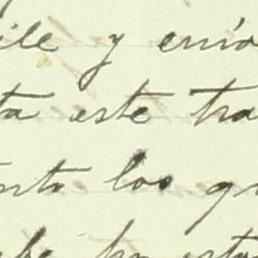 ile y envío
ta este tra
nto los qu